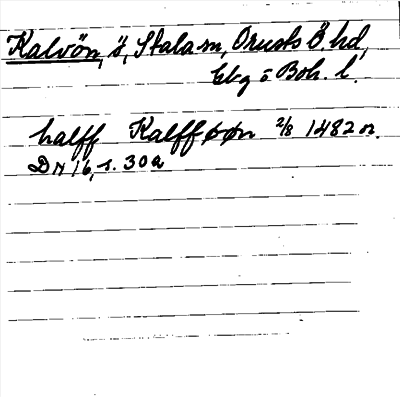 Kalvön, ö, Stala sn, Orusts Ö hd,
Gbg o Boh. l.
halff Kalfføøn 2/8 1482 or.
DN 16, s. 302